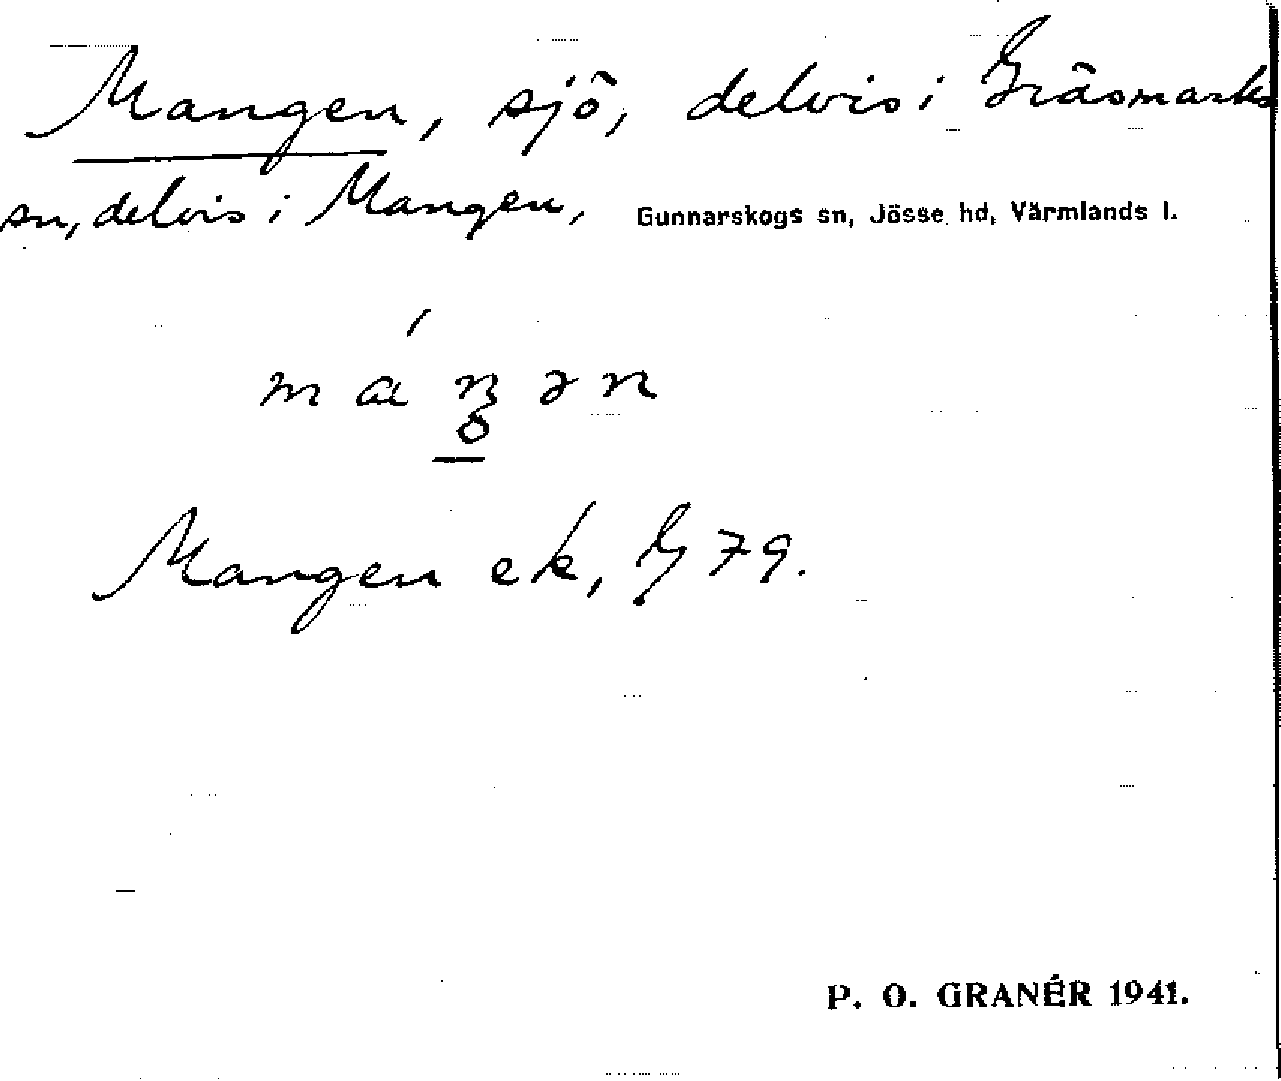 Mangen, sjö, delvis i Gräsmarks
sn, delvis i Mangen, Gunnarskogs sn, Jösse hd, Värmlands l.
Mangen ek, G 79.
P. O. GRANÉR 1941.